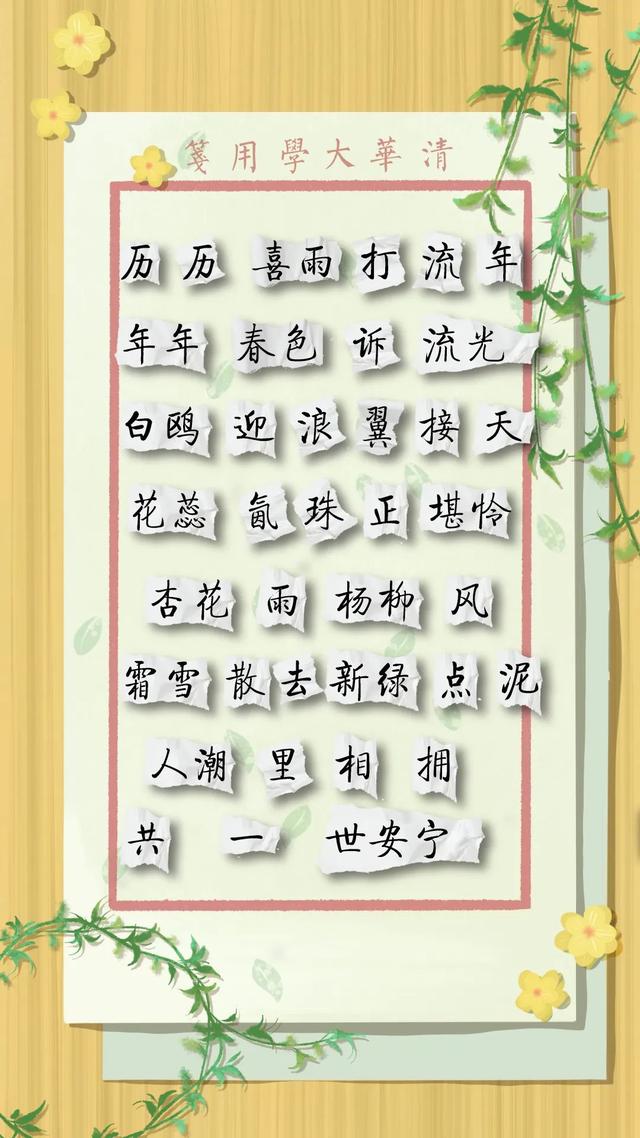 清華大學用箋
历历喜雨打流年
年年春色诉流光
白鸥迎浪翼接天
花蕊氤珠正堪怜
杏花雨杨柳风
霜雪散去新绿点泥
人潮里相拥
共一世安宁